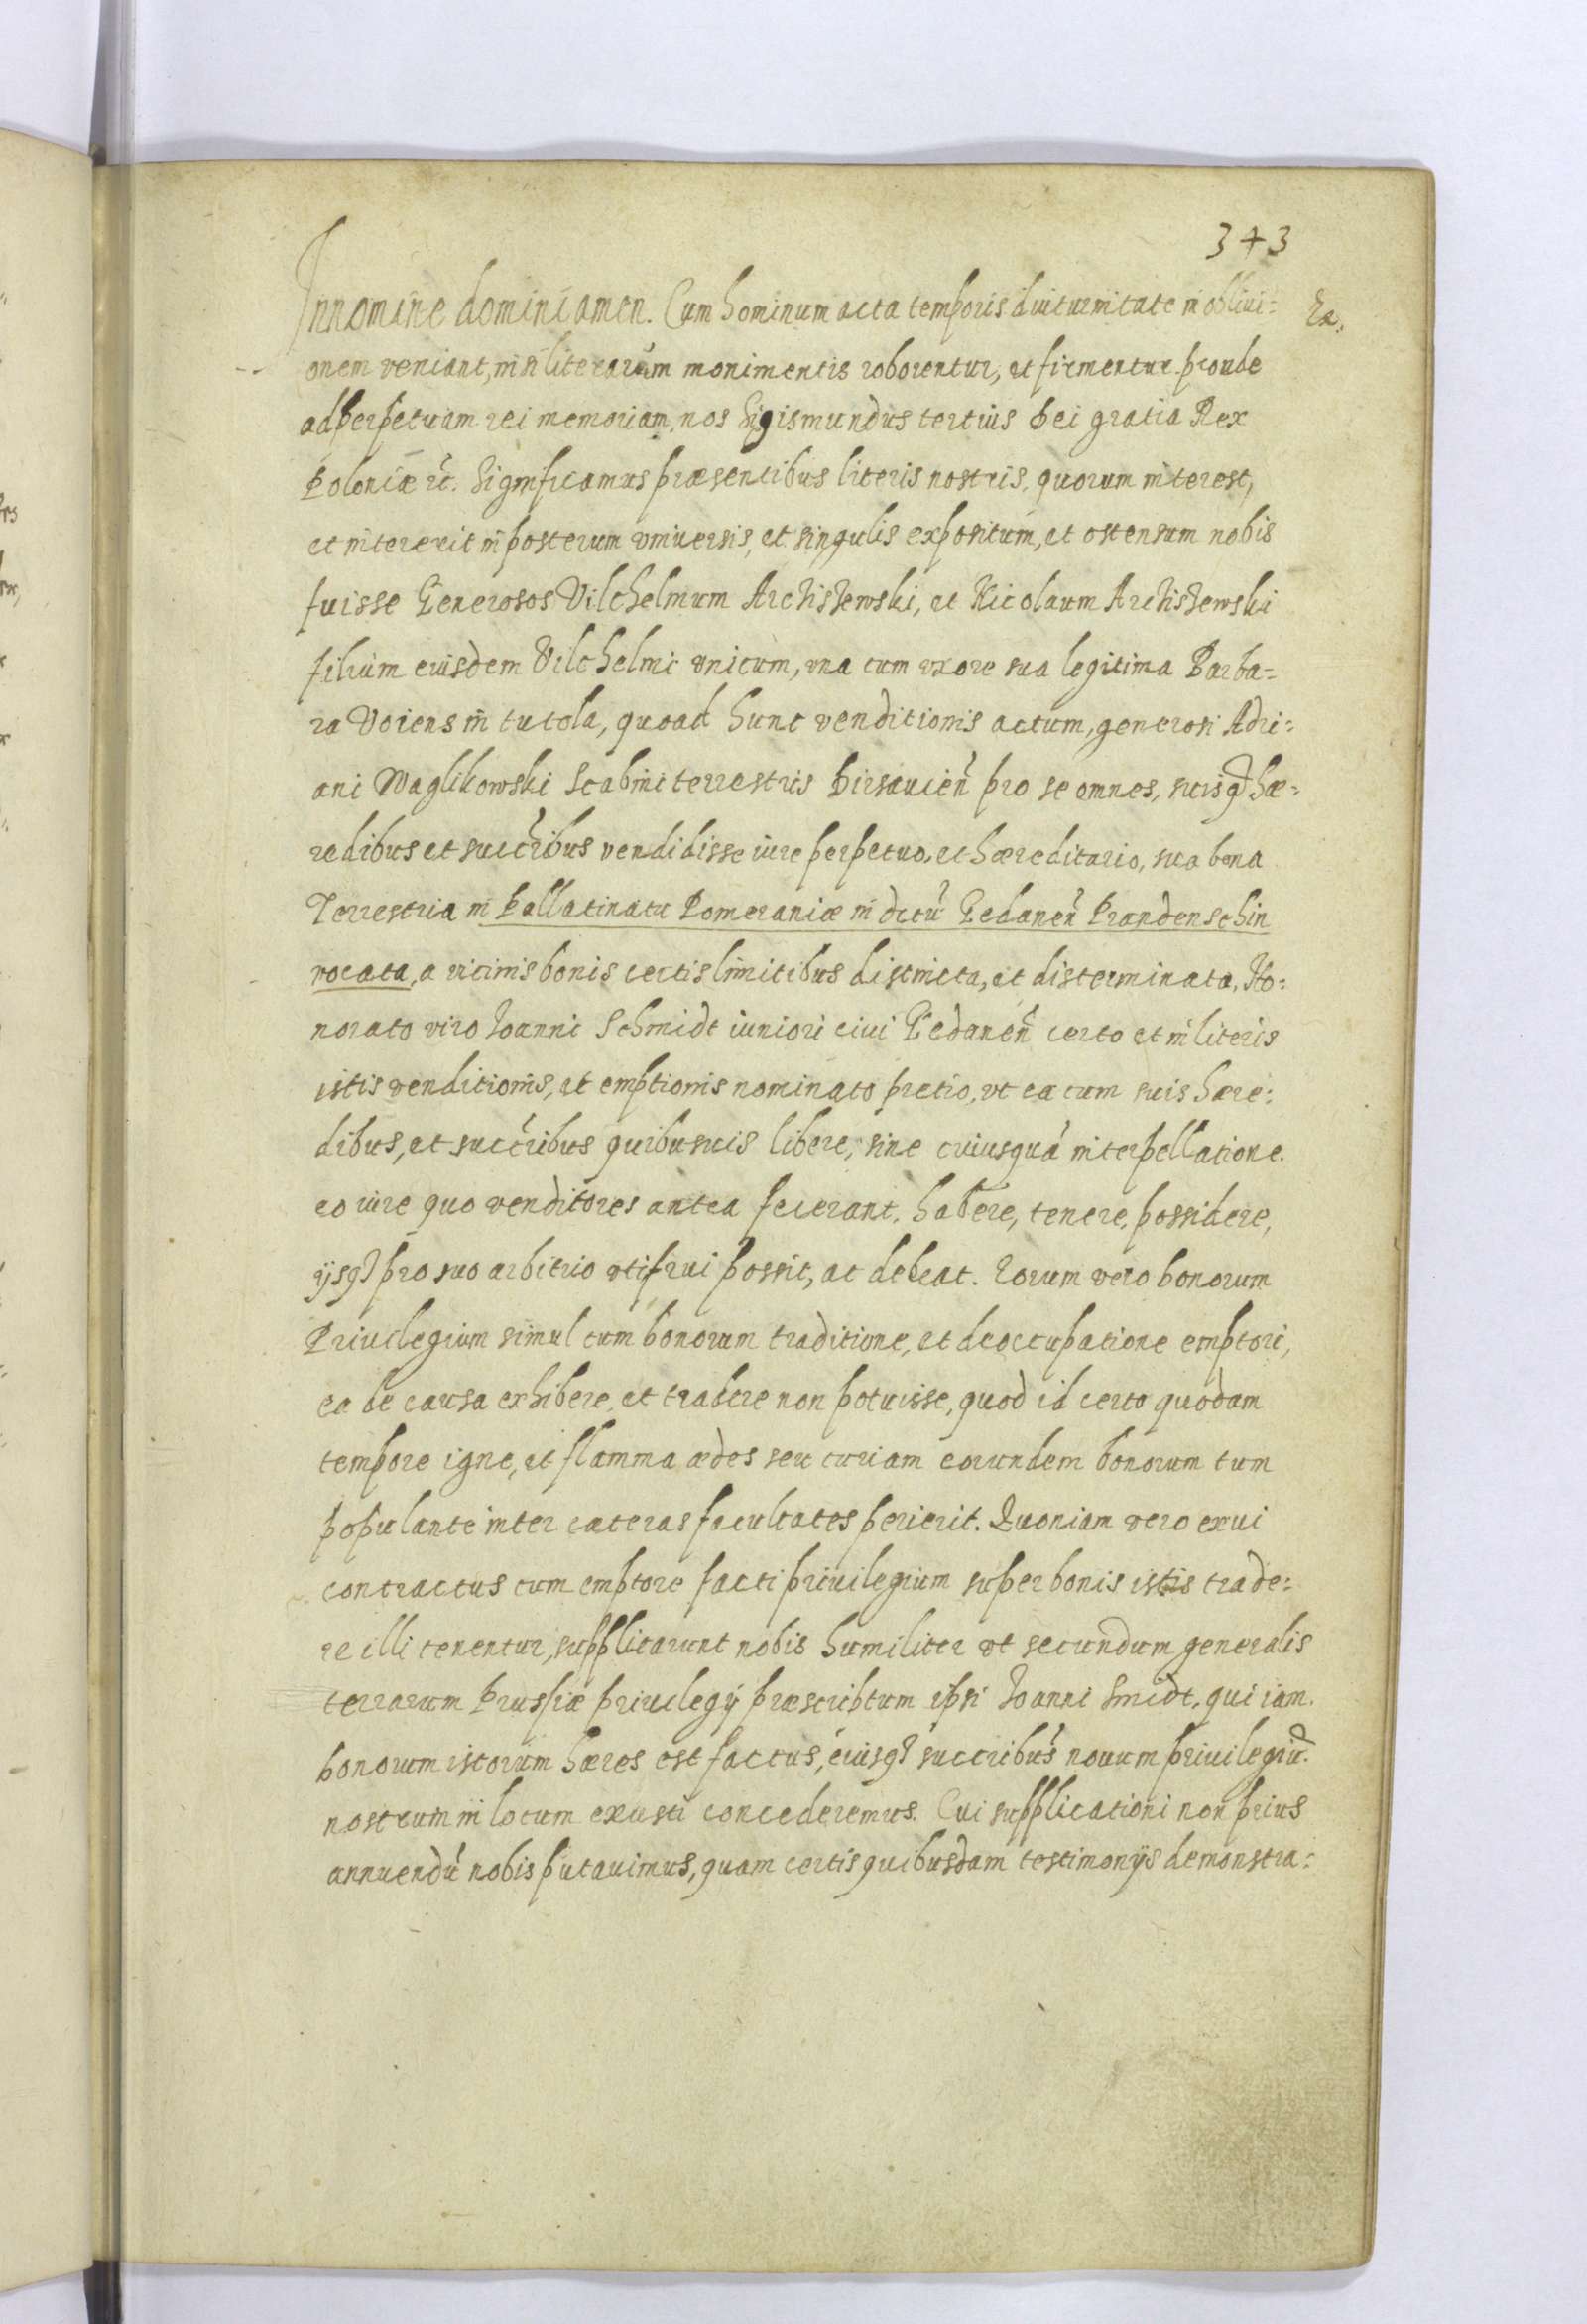 343
In nomine domini amen. Cum hominum acta temporis diuturnitate in obliui=
onem veniant, ni literarum monimentis roborentur, et firmentur proinde
ad perpetuam rei memoriam, nos Sigismundus tertius Dei gratia Rex
Poloniæ etc. Significamus præsentibus literis nostris, quorum interest,
et intererit in posterum vniuersis, et singulis expositum, et ostensum nobis
fuisse Generosos Vilchelmum Arcziszewski, et Nicolaum Arcziszewski
filium eiusdem Vilchelmi vnicum, vna cum vxore sua legitima Barba=
ra Voiens in tutela, quoad hunc venditionis actum, generosi Adri=
ani Waglikowski Scabini terrestris Dirsauien̄ pro se omnes, suisq́ hæ=
redibus et succribus vendidisse iure perpetuo, et hæreditario, sua bona
Terrestria in Pallatinatu Pomeraniæ in dctũ Gedanen̄ Prandenschin
vocata, a vicinis bonis certis limitibus distincta, et disterminata, Ho=
norato viro Ioanni Schmidt iuniori ciui Gedanen̄ certo et in literis
istis venditionis, et emptionis nominato pretio, vt ea cum suis hære=
dibus, et succribus quibusuis libere, sine cuiusquã interpellatione.
eo iure quo venditores antea fecerant, habere, tenere, possidere,
ijsq́ pro suo arbitrio vti frui possit, ac debeat. Eorum vero bonorum
Priuilegium simul cum bonorum traditione, et deoccupatione emptori,
ea de causa exhibere, et tradere non potuisse, quod id certo quodam
tempore igne, et flamma ædes seu curiam eorundem bonorum tum
populante inter cæteras facultates perierit. Quoniam vero ex vi
contractus cum emptore facti priuilegium super bonis istis trade=
re illi tenentur, supplicarunt nobis humiliter vt secundum generalis
terrarum Prussiæ priuilegij præscriptum ipsi Ioanni Smidt, qui iam.
bonorum istorum hæres est factus, eiusq́ succribus nouum priuilegiũ
nostrum in locum exusti concederemus. Cui supplicationi non prius
annuendũ nobis putauimus, quam certis quibusdam testimonijs demonstra=